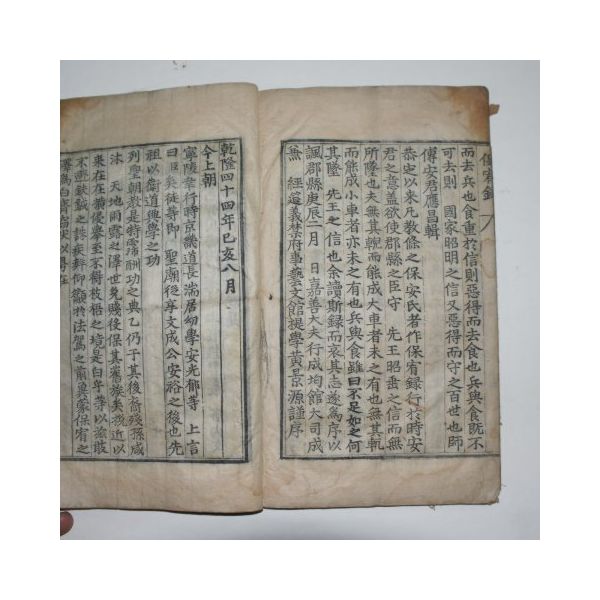 而去兵也食重於信則惡得而去食也兵與食旣不
可去則 國家昭明之信又惡得而守之百世也師
傅安君應昌輯
恭定以來凡敎條之保安氏者作保宥錄行於時安
君之意盖欲使郡縣之臣守 先王昭盡之信而無
所墜也夫無其輗而能成大車者未之有也無其軏
而能成小車者亦未之有也兵與食雖曰不足如之何
其墜 先王之信也余讀斯錄而哀其志遂爲序以
諷郡縣庚辰二月 日嘉善大夫行成均館大司成
兼 經筵義禁府事藝文館提學黃景源謹序
乾隆四十四年己亥八月
今上朝
寧陵幸行時京畿道長湍居幼學安光郁等 上言
曰臣矣徒等卽 聖廟從享文成公安裕之後也先
祖以衛道興學之功
列聖朝敎是特霈酬功之典乙仍于其後裔殘孫咸
沐 天地雨露之澤世免賤役保其舊族矣挽近以
來在在備侵擧至不得枚梧之境是白乎等以玆敢